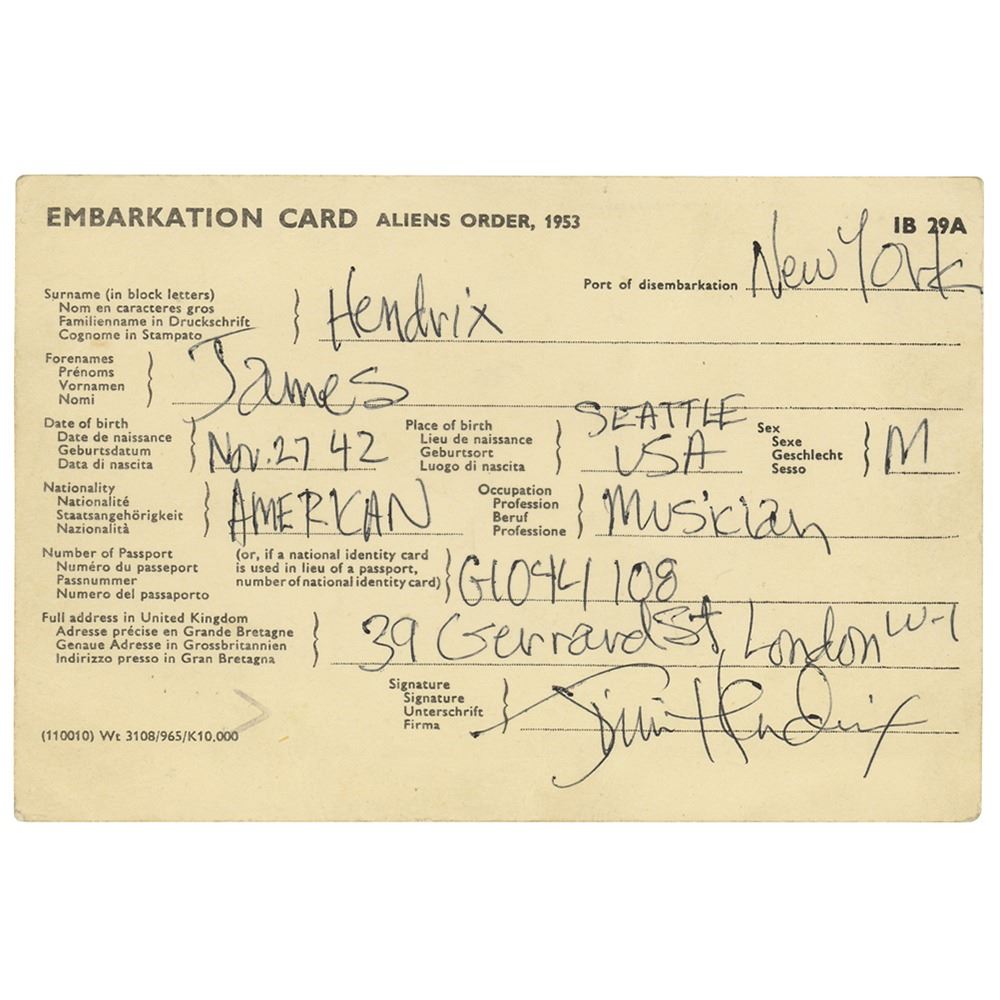 EMBARKATION CARD ALIENS ORDER, 1953
IB 29A
Port of disembarkation New York
Surname (in block letters)
Nom en caracteres gros
Familienname in Druckschrift
Cognome in Stampato
Hendrix
Forenames
Prénoms
Vornamen
Nomi
James
Date of birth
Date de naissance
Geburtsdatum
Data di nascita
Nov. 27 42
Place of birth
Lieu de naissance
Geburtsort
Luogo di nascita
SEATTLE
USA
Sex
Sexe
Geschlecht
Sesso
M
Nationality
Nationalité
Staatsangehörigkeit
Nazionalità
AMERICAN
Occupation
Profession
Beruf
Professione
Musician
Number of Passport
Numéro du passeport
Passnummer
Numero del passaporto
(or, if a national identity card
is used in lieu of a passport,
number of national identity card)
G1044108
Full address in United Kingdom
Adresse précise en Grande Bretagne
Genaue Adresse in Grossbritannien
Indirizzo presso in Gran Bretagna
39 Gerrard St, London W-1
Signature
Signature
Unterschrift
Firma
Jimi Hendrix
(110010) Wt 3108/965/K10,000